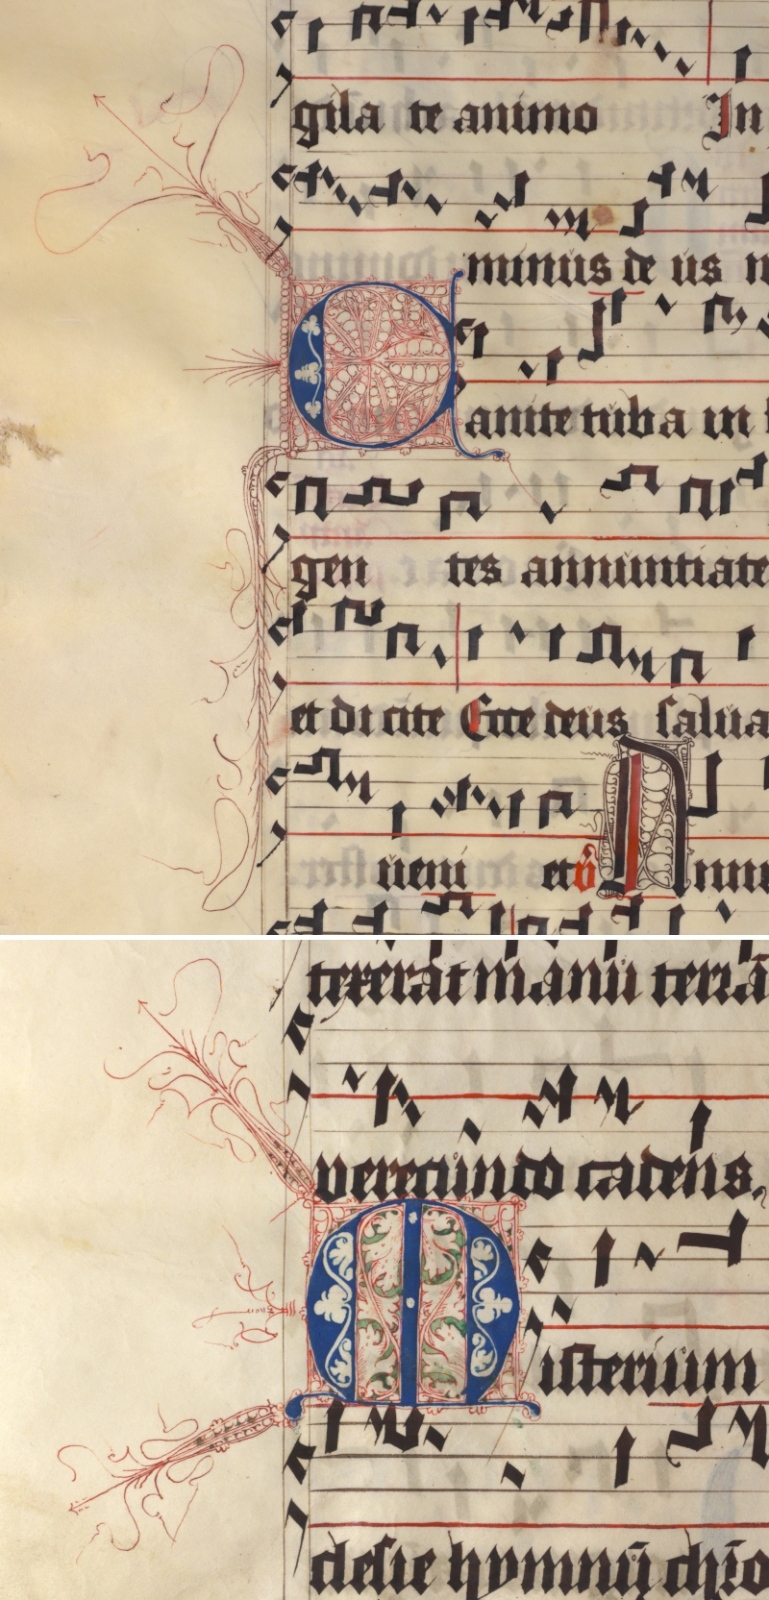 gila te animo In
minus de us n
Canite tuba in
gen tes annuntiate
et di cite Ecce deus salua
ueni et v̄ Annu
texerat manū terrā
verecundo cadens,
Misterium
clesie hymnū chr̄o